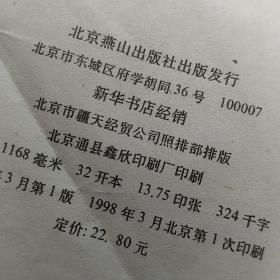 北京燕山出版社出版发行
北京市东城区府学胡同36号 100007
新华书店经销
北京市疆天经贸公司照排部排版
北京通县鑫欣印刷厂印刷
1168毫米 32开本 13.75印张 324千字
年3月第1版 1998年3月北京第1次印刷
定价:22.80元